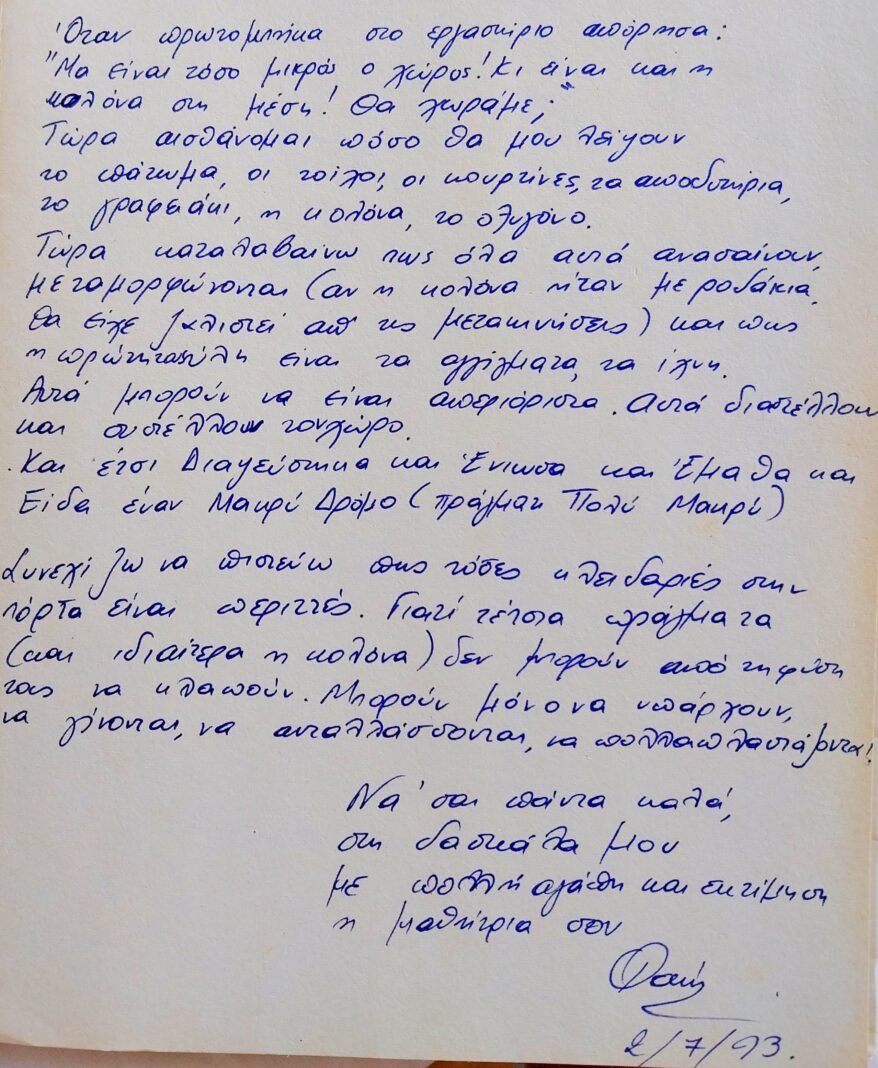 Όταν πρωτομπήκα στο εργαστήριο απόρησα:
"Μα είναι τόσο μικρός ο χώρος! Κι είναι και η
κολόνα στη μέση! Θα χωράμε;"
Τώρα αισθάνομαι πόσο θα μου λείψουν
το πάτωμα, οι τοίχοι, οι κουρτίνες, τα αποδυτήρια,
το γραφειάκι, η κολόνα, το οξυγόνο.
Τώρα καταλαβαίνω πως όλα αυτά ανασαίνουν,
μεταμορφώνονται (αν η κολόνα ήταν με ροδάκια,
θα είχε ζαλιστεί απ' τις μετακινήσεις) και πως
η πρώτη ύλη είναι τα αγγίγματα, τα ίχνη.
Αυτά μπορούν να είναι απεριόριστα. Αυτά διαστέλλουν
και συστέλλουν τον χώρο.
Και έτσι Διαψεύστηκα και Ένιωσα και Έμαθα και
Είδα έναν Μακρύ Δρόμο (πράγματι Πολύ Μακρύ)
Συνεχίζω να πιστεύω πως τόσες κλειδαριές στην
πόρτα είναι περιττές. Γιατί τέτοια πράγματα
(και ιδιαίτερα η κολόνα) δεν μπορούν από τη φύση
τους να κλαπούν. Μπορούν μόνο να υπάρχουν,
να γίνονται, να ανταλλάσσονται, να πολλαπλασιάζονται!
Να 'σαι πάντα καλά,
στη δασκάλα μου
με πολλή αγάπη και εκτίμηση
η μαθήτρια σου
2/7/93.